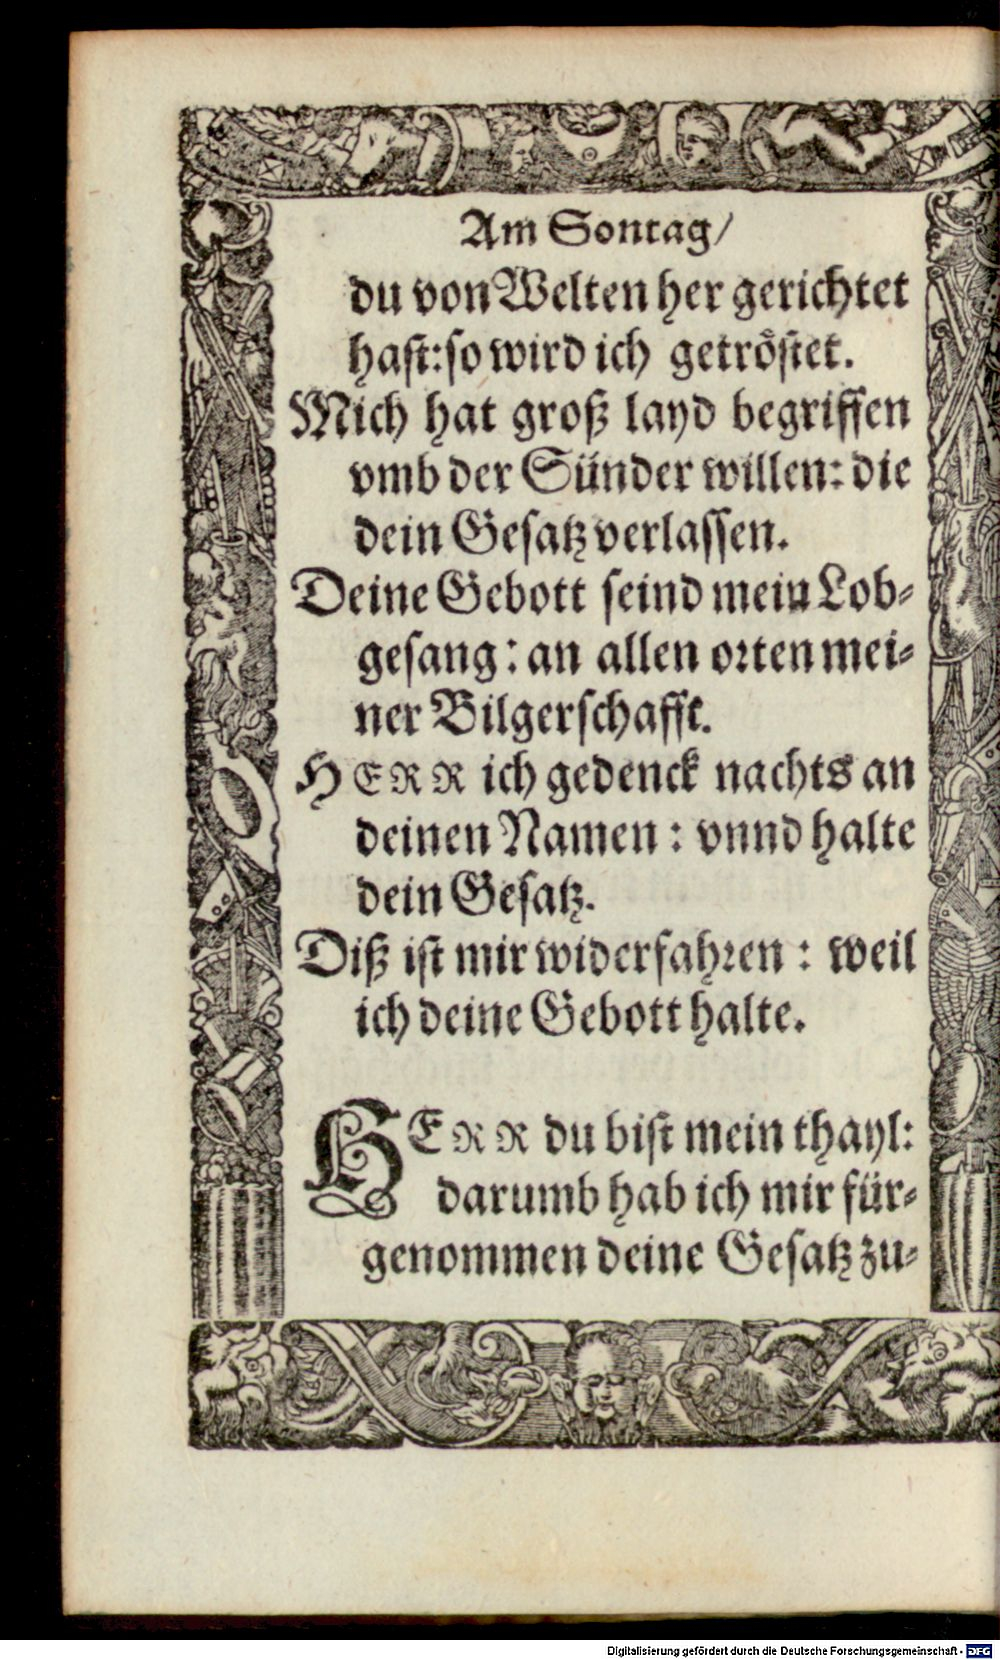 Am Sontag/
du von Welten her gerichtet
hast: so wird ich getröstet.
Mich hat groß layd begriffen
vmb der Sünder willen: die
dein Gesatz verlassen.
Deine Gebott seind mein Lob-
gesang: an allen orten mei-
ner Bilgerschafft.
HERR ich gedenck nachts an
deinen Namen: vnnd halte
dein Gesatz.
Diß ist mir widerfahren: weil
ich deine Gebott halte.
HERR du bist mein thayl:
darumb hab ich mir für-
genommen deine Gesatz zu-
Digitalisierung gefördert durch die Deutsche Forschungsgemeinschaft - DFG